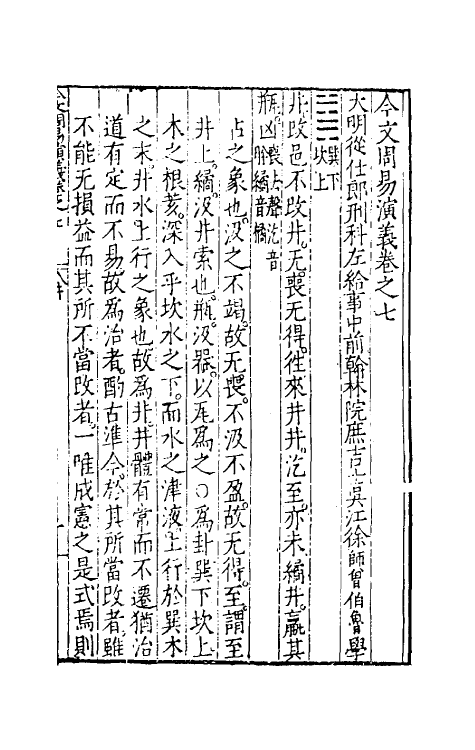 今文周易演義卷之七
大明從仕郎刑科左給事中前翰林院庶吉士吳江徐師曾伯魯學
䷯巽下坎上
井改邑不改井。无喪无得。往來井井。汔至。亦未繘井。羸其
瓶。凶。喪去聲汔音肸繘音橘
占之象也。汲之不竭。故无喪。不汲不盈。故无得。至。謂至
井上。繘。汲井索也。瓶。汲器。以瓦爲之○爲卦巽下坎上。
木之根荄。深入乎坎水之下。而水之津液。上行於巽木
之末。井水上行之象也。故爲井。井體有常而不遷。猶治
道有定而不易。故爲治者。酌古準今。於其所當改者。雖
不能无損益。而其所不當改者。一唯成憲之是式焉。則
今文周易演義卷之七 井